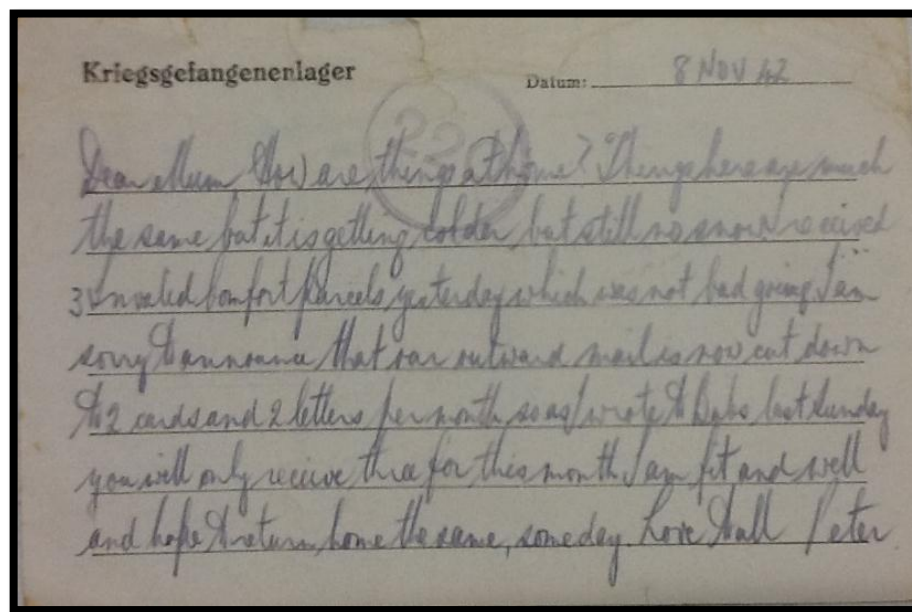 Kriegsgefangenenlager
Datum: 8 NOV 42
22
Dear Mum How are things at home? Things here are much
the same but it is getting colder but still no snow I received
3 Invalid Comfort Parcels yesterday which was not bad going I am
sorry to announce that our outward mail is now cut down
to 2 cards and 2 letters per month so as I wrote to Babs last Sunday
you will only receive three for this month I am fit and well
and hope to return home the same, someday. Love to all Peter